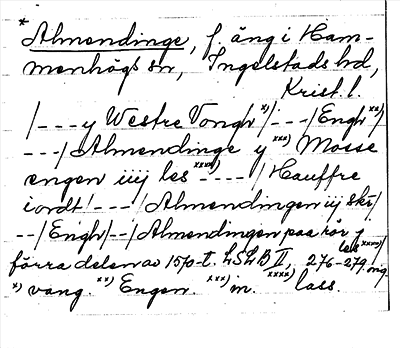 * Almendinge, f. äng i Ham-
menhögs sn, Ingelstads hd,
Krist. l.
/---y Westre Vongh x)/---/Engh xx)/
---/Almendinge y xxx) Mosse
engen iiij les xxxx) ---/Hauffre
iordt/---/Almendingen iij skr/
--/Engh/--/Almendingen paa rör y
les xxxx)/
förra delen av 1570-t. LSLB II, 276-279. orig.
x) vang. xx) Engen. xxx) in. xxxx) lass.